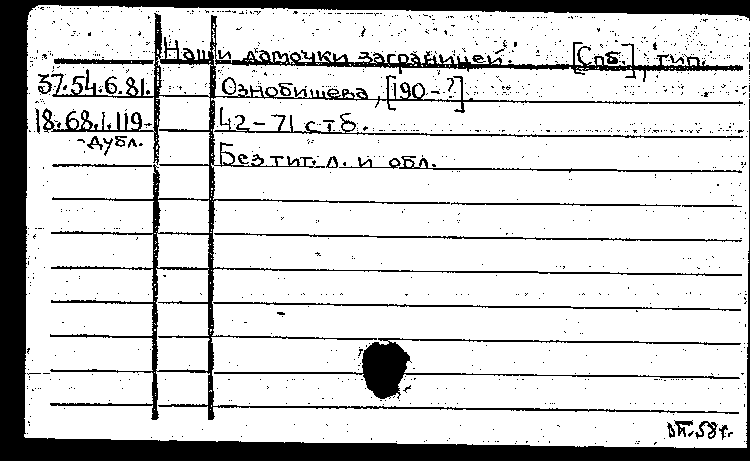 Наши дамочки заграницей. [Спб.], тип.
37.54.6.81. Ознобишева, [190-?]
18.68.1.119- 42-71 стб.
-дубл.
Без тит. л. и обл.